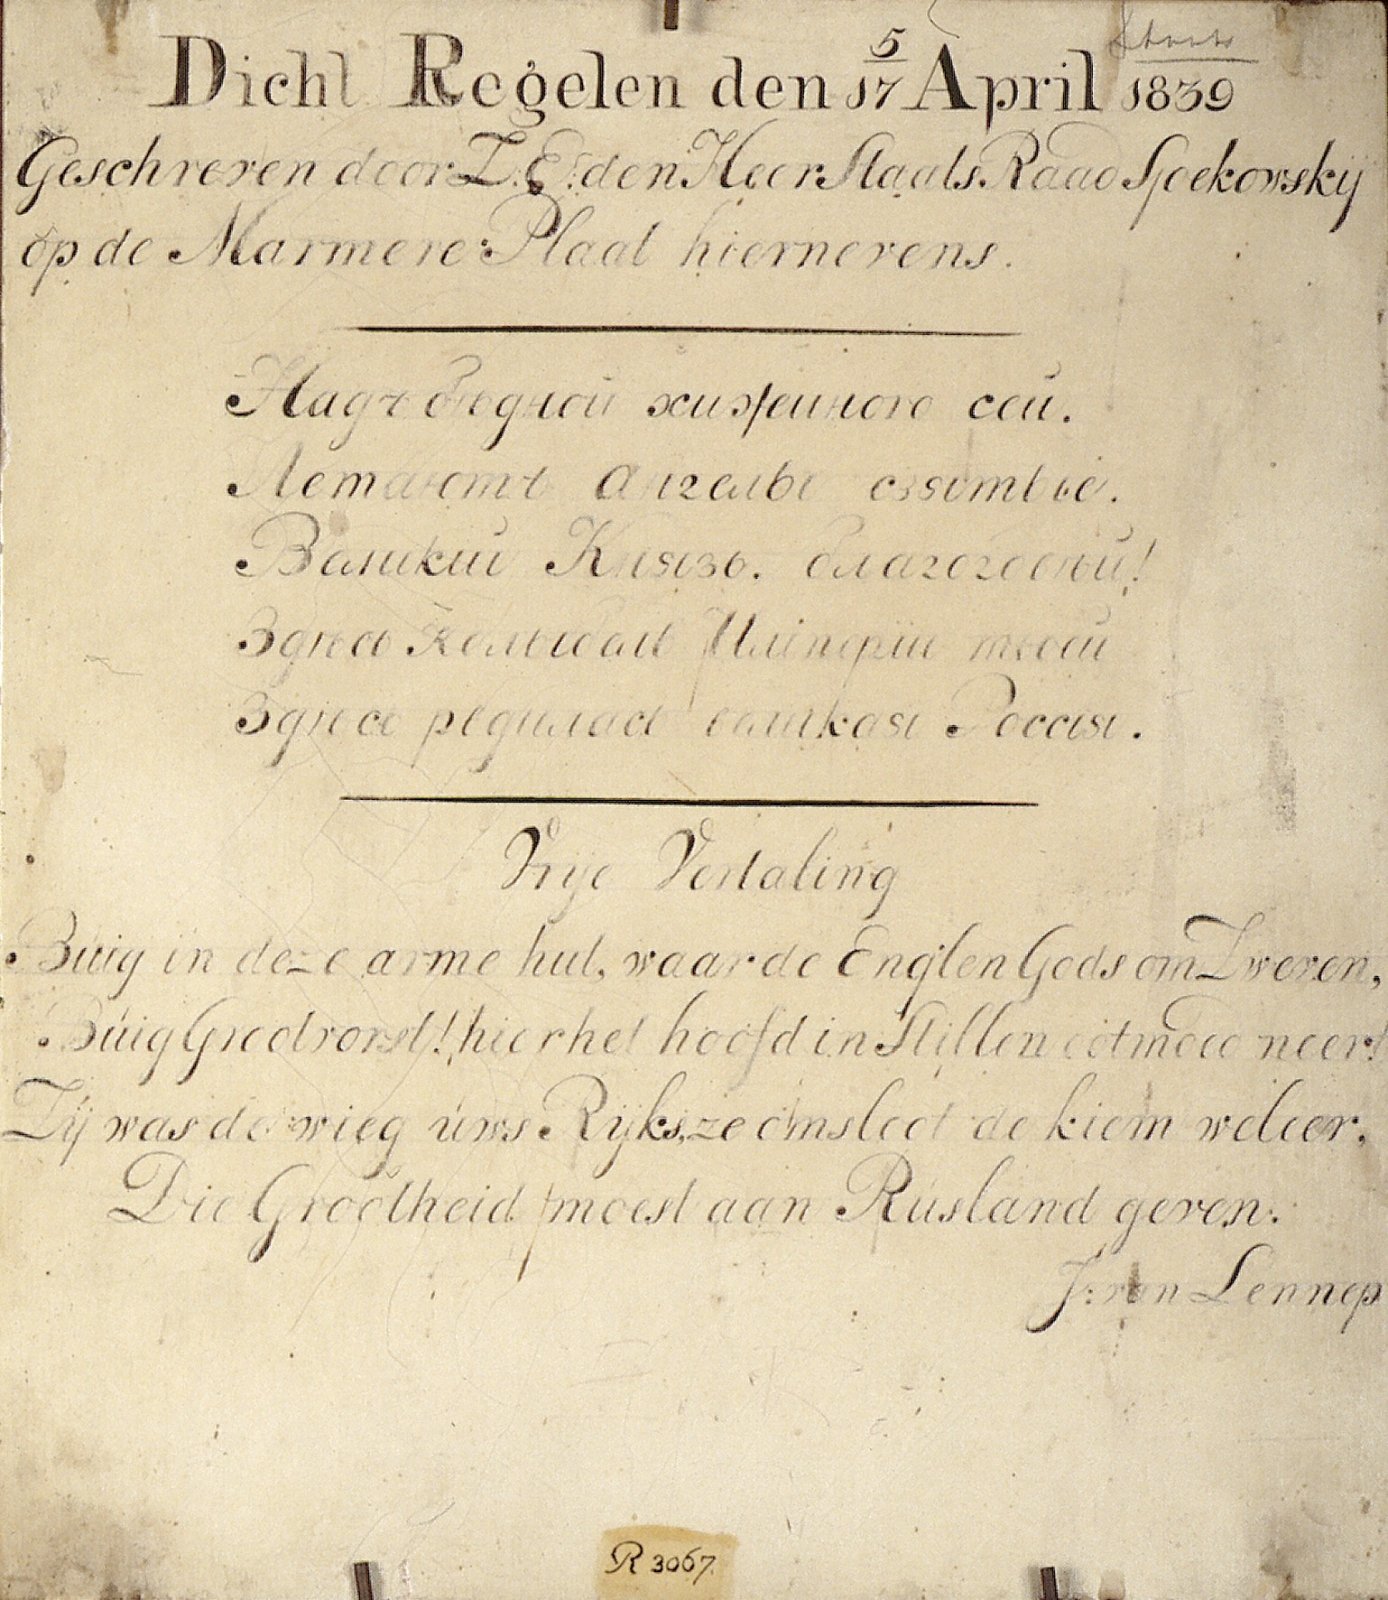 Dicht Regelen den 5/17 April 1839
Geschreven door Z.E: den Heer Staats Raad Sjoekowskij
op de Marmere Plaat hiernevens.
Надъ бѣдной хижиною сей.
Летаютъ ангелы святые.
Великии Князь. благоговѣй!
Здѣсь колыбель Имперiи твоей
Здѣсь родилась великая Россiя.
Vrije Vertaling
Buig in deze arme hut, waar de Englen Gods om Zweven,
Buig Grootvorst! hier het hoofd in Stillen ootmoed neer!
Zij was de wieg uws Rijks, ze omsloot de kiem weleer,
Die Grootheid moest aan Rusland geven.
J: van Lennep
R 3067